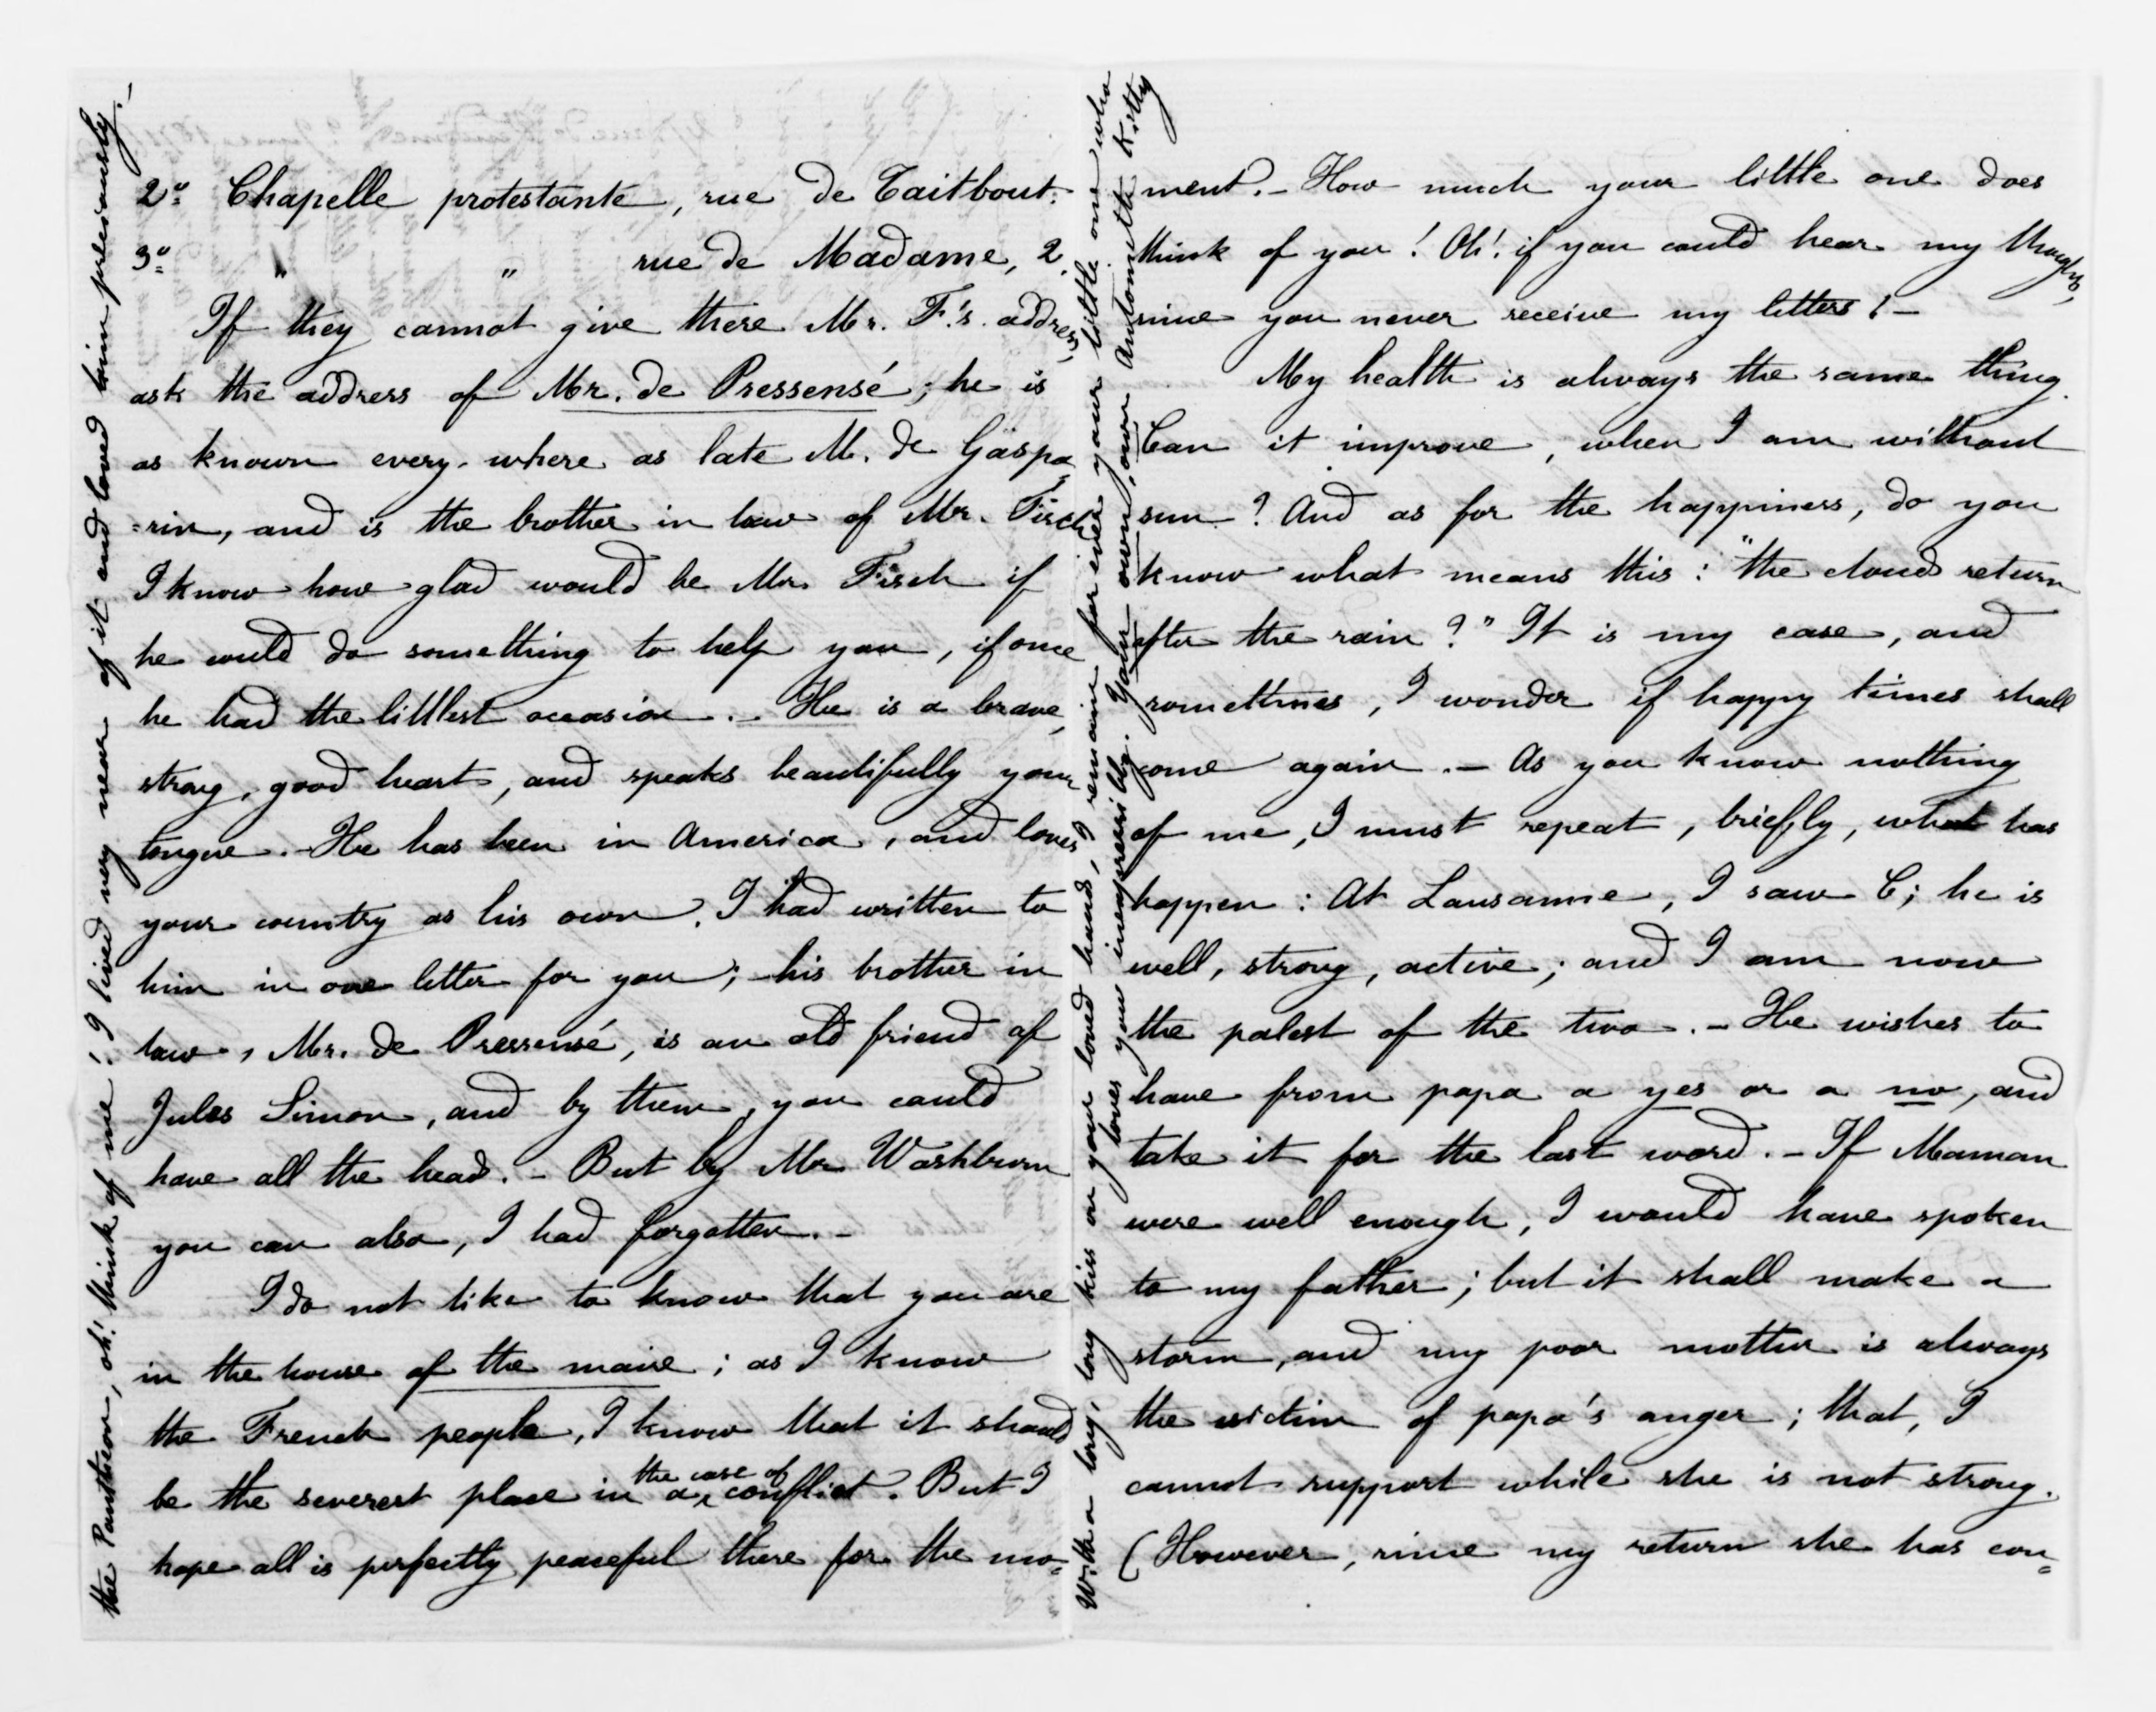 2º Chapelle protestante, rue de Taitbout.
3º " " rue de Madame, 2.
If they cannot give there Mr. F.'s address,
ask the address of Mr. de Pressensé; he is
as known every-where as late M. de Gaspa
=rin, and is the brother in law of Mr. Fisch
I know how glad would be Mr. Fisch if
he could do something to help you, if once
he had the littlest occasion. - He is a brave,
strong, good heart, and speaks beautifully your
tongue. - He has been in America, and loves
your country as his own. I had written to
him in one letter for you; his brother in
law, Mr. de Pressensé, is an old friend of
Jules Simon, and by them, you could
have all the head. - But by Mr Washburn
you can also, I had forgotten. -
I do not like to know that you are
in the house of the maire; as I know
the French people, I know that it should
be the severest place in a the case of conflict. But I
hope all is perfectly peaceful there for the mo=
the Pantheon, oh! think of me! I lived very near of it and loved him preciously. -
ment. - How much your little one does
think of you! Oh! if you could hear my thoughts,
since you never receive my letters! -
My health is always the same thing.
Can it improve, when I am without
sun? And as for the happiness, do you
know what means this: "the clouds return
after the rain?" It is my case, and
sometimes, I wonder if happy times shall
come again. - As you know nothing
of me, I must repeat, briefly, what has
happen: At Lausanne, I saw C; he is
well, strong, active; and I am now
the palest of the two. - He wishes to
have from papa a yes or a no, and
take it for the last word. - If Maman
were well enough, I would have spoken
to my father; but it shall make a
storm, and my poor mother is always
the victim of papa's anger; that, I
cannot support while she is not strong.
(However, since my return she has con=
With a long, long kiss on your loved hand, I remain for ever your little one who
loves you inexpressibly. Your own, own Antoinette Kitty